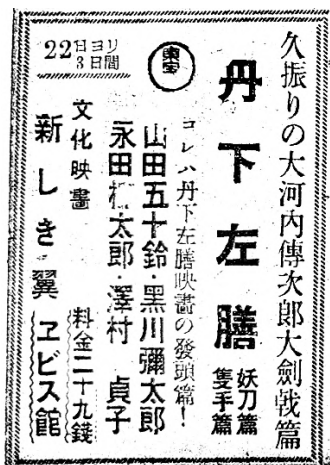 久振りの大河内傳次郎大劍戟篇
丹下左膳
妖刀篇
隻手篇
コレハ丹下左膳映畫の發頭篇!
東宝
山田五十鈴・黒川彌太郎
永田 太郎・澤村 貞子
22日ヨリ3日間
文化映畫
新しき翼
料金二十九錢
ヱビス館